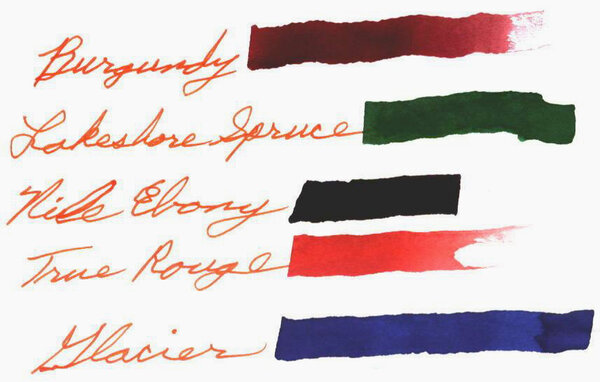 Burgundy
Lakeshore Spruce
Nile Ebony
True Rouge
Glacier